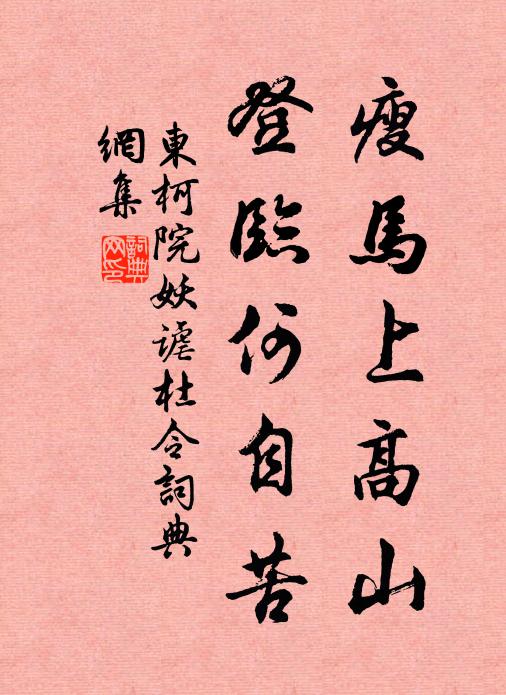 瘦馬上高山
登臨何自苦
東柯院妖謔杜令詞典
網集
詞典
网印